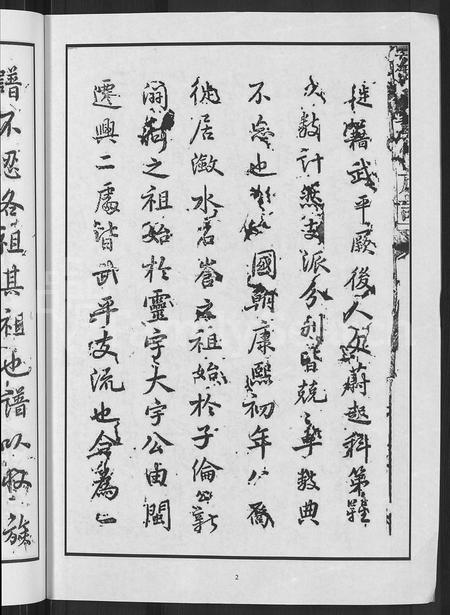 徙籍武平厥後人文蔚起科第難
以數計然支派分别皆兢兢奉教典
不忘也 國朝康熙初年 喬
徙居瀲水 之祖始於子倫公新
澗 之祖始於靈宇大宇公由閩
遷興二處皆武平支流也合為
譜不忍各祖其祖也譜以收族
2